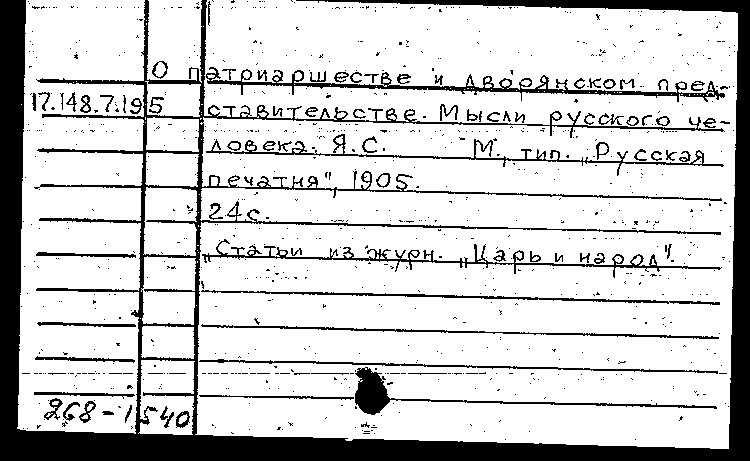 О патриаршестве и дворянском пред-
17.148.7.195 ставительстве. Мысли русского че-
ловека. Я.С. М., тип. „Русская
печатня", 1905.
24с.
„Статьи из журн. „Царь и народ".
268-1540